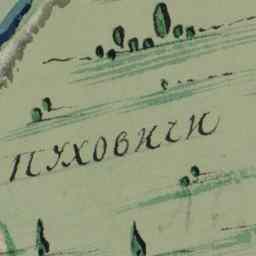 ПУХОВИЧИ